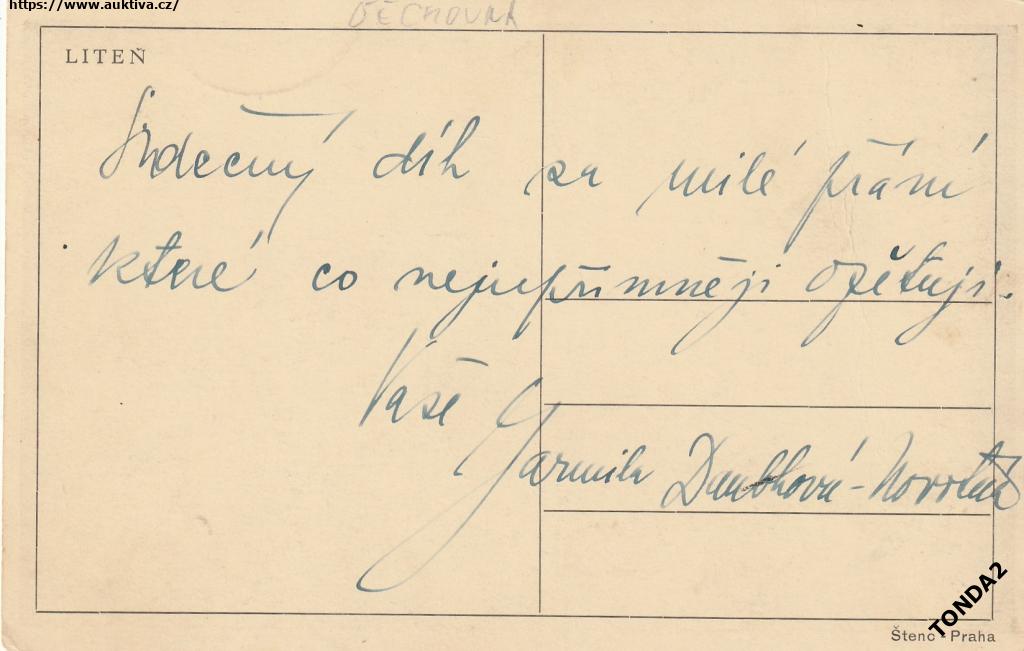 https://www.auktiva.cz/
LITEŇ
Srdečný dík za milé přání
které co nejupřímněji opětuji.
Vaše
Jarmila Daubková-Novotná
TONDA2
Štenc - Praha